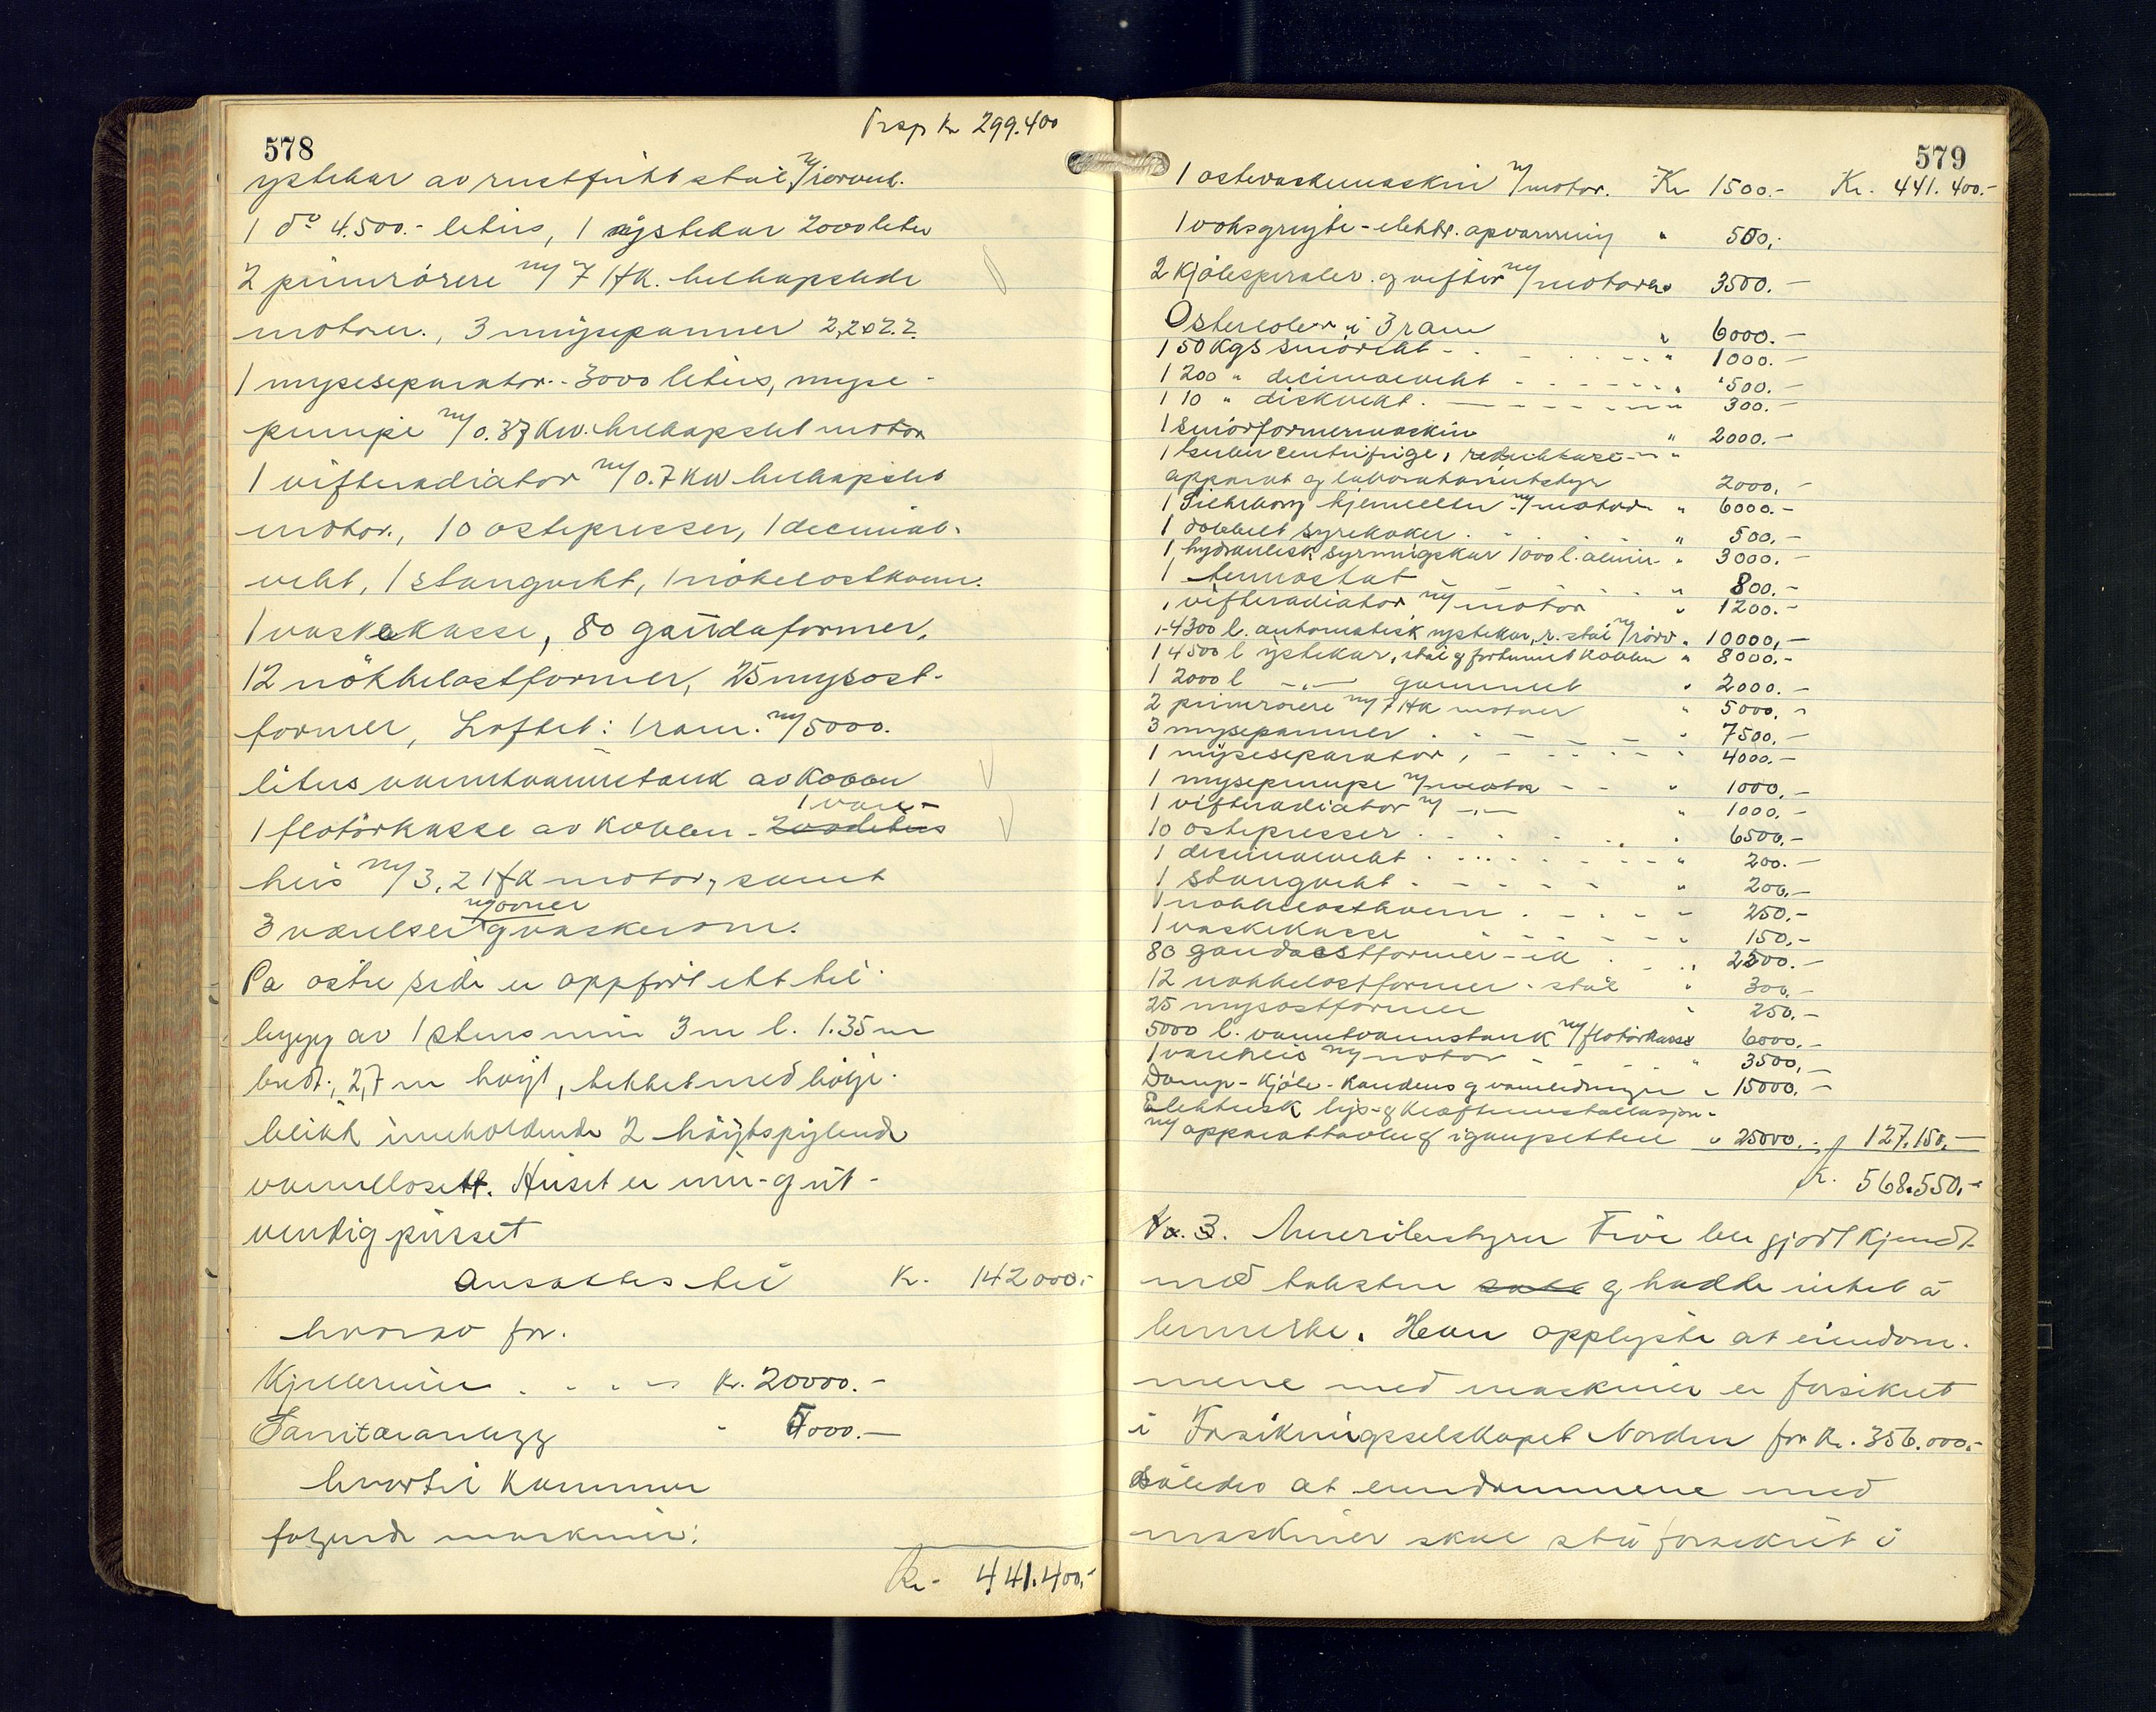 578
Trsp kr 299.400
ystekar av rustfritt stål m/rörverk.
1 do 4.500.- liters, 1 ystekar 2000 liter
2 primrörere m/ 7 HK. helkapslede
motorer., 3 mysepanner 2,2 x 2.2
1 myseseparator - 3000 liters, myse-
pumpe m/ 0.37 Kw. helkapslet motor
1 vifteradiator m/ 0.7 KW helkapslet
motor., 10 ostepresser, 1 decimal-
vekt, 1 stangvekt, 1 nökelostkvern.
1 vaskekasse, 80 gaudaformer,
12 nökkelostformer, 25 mysost-
former, Loftet: 1 rom. m/ 5000.
liters varmtvannstank av kobber
1 flotörkasse av kobber - 200 liters 1 vare-
heis m/ 3,2 HK motor, samt
3 værelser m/ovner og vaskerom.
På östre side er oppfört ett til-
bygg av 1 stens mur 3 m l. 1.35 m
bredt, 2,7 m höyt, tekket med bölge-
blikk inneholdende 2 höytspylende
vannklosett. Huset er inn- og ut-
vendig pusset
ansattes til Kr. 142000.-
hvorav for.
Kjellermur . . . . Kr. 20000.-
Sanitæranlegg - 5000.-
hvortil kommer
følgende maskiner:
Kr. 441.400,-
579
1 ostevaskemaskin m/motor. Kr 1500.- Kr. 441.400.-
1 voksgryte - elektr. opvarming " 500,-
2 Kjölespiraler og vifter m/motorer " 3500.-
Ostereoler i 3 rom " 6000.-
1 50 Kgs smörvekt - . . " 1000.-
1 200 " decimalvekt - - - " 500.-
1 10 " diskvekt. - - - " 300.-
1 smörformermaskin " 2000.-
1 Gerber centrifuge, reduktase - "
apparat og laboratorieutstyr 2000,-
1 Silkeborg kjerneelter m/motor " 6000.-
1 dobbelt syrekoker . . . " 500,-
1 hydraulisk syrningskar 1000 l. alum. " 3000.-
1 termostat . . " 800.-
1 vifteradiator m/ motor " 1200.-
1 - 4300 l. automatisk ystekar, r. stål m/rörv. " 10000,-
1 4500 l ystekar, stål og fortinnet kobber " 8000.-
1 2000 l -"- gammelt " 2000.-
2 primrörere m/ 7 HK motorer " 5000.-
3 mysepanner . - - - " 7500.-
1 myseseparator, - - - " 4000.-
1 mysepumpe m/motor - - " 1000.-
1 vifteradiator m/ -"- " 1000.-
10 ostepresser . . . " 6500,-
1 decimalvekt . . . - - " 200.-
1 stangvekt . - - - " 200.-
1 nökkelostkvern . - . - - 250.-
1 vaskekasse - - - - " 150.-
80 gaudaostformer - ek . " 2500.-
12 nökkelostformer - stål " 300.-
25 mysostformer " 250.-
5000 l. varmtvannstank m/flotörkasse 6000.-
1 vareheis m/motor - " 3500,-
Damp - Kjöle - Kondens og vannledninger " 15000.-
Elektrisk lys- og kraftinstallasjon -
m/ apparattavle og igangsettere " 25000.- " 127.150,-
Kr. 568.550,-
Nr. 3. Meieribestyrer Five ble gjort kjendt
med taksten og hadde intet å
bemerke. Han opplyste at eiendom-
mene med maskiner er forsikret
i Forsikringsselskapet Norden for Kr. 356.000.-
således at eiendommene med
maskiner skal stå forsikret i